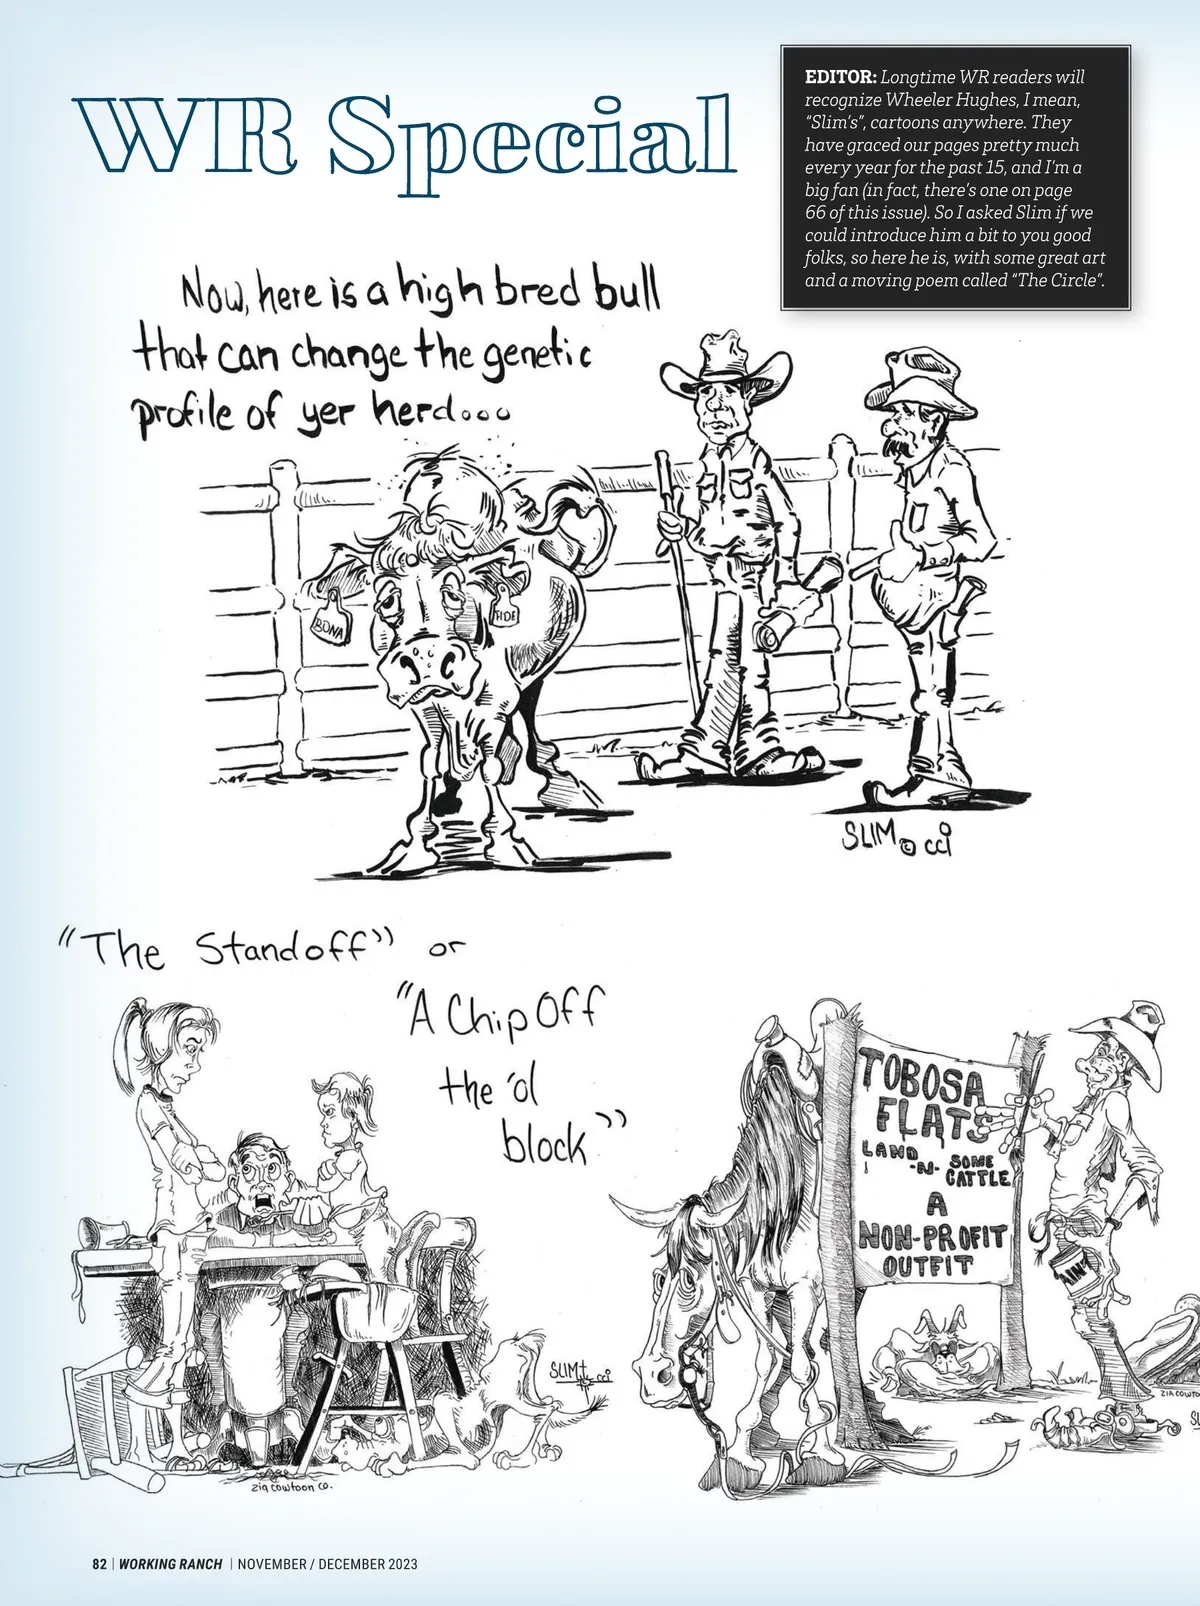 WR Special
EDITOR: Longtime WR readers will
recognize Wheeler Hughes, I mean,
“Slim’s”, cartoons anywhere. They
have graced our pages pretty much
every year for the past 15, and I’m a
big fan (in fact, there’s one on page
66 of this issue). So I asked Slim if we
could introduce him a bit to you good
folks, so here he is, with some great art
and a moving poem called “The Circle”.
Now, here is a high bred bull
that can change the genetic
profile of yer herd...
BONA
FIDE
SLIM © cci
"The Standoff" or
"A Chip Off
the 'ol
block"
SLIM cci
zia cowtoon co.
TOBOSA
FLATS
LAND
-N- SOME
CATTLE
A
NON-PROFIT
OUTFIT
ZIA COWTO
SL
82 | WORKING RANCH | NOVEMBER / DECEMBER 2023